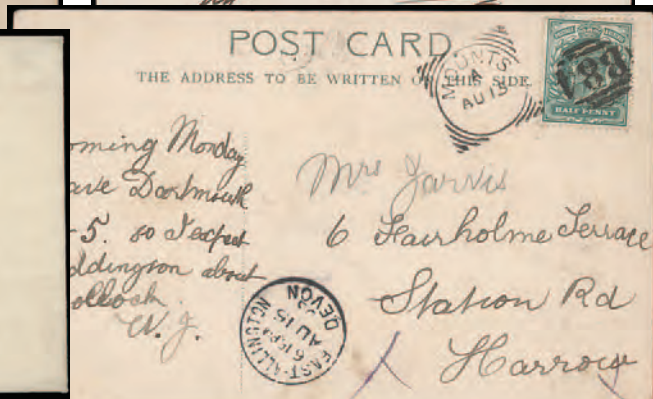 POST CARD
THE ADDRESS TO BE WRITTEN ON THIS SIDE.
MOUNTS
A
AU 15
HALF PENNY
oming Monday
ave Dartmouth
5. so I expect
ddington about
oclock.
W. J.
Mrs Jarvis
6 Fairholme Terrace
Station Rd
Harrow
EAST-ALLINGTON
AU 15
DEVON